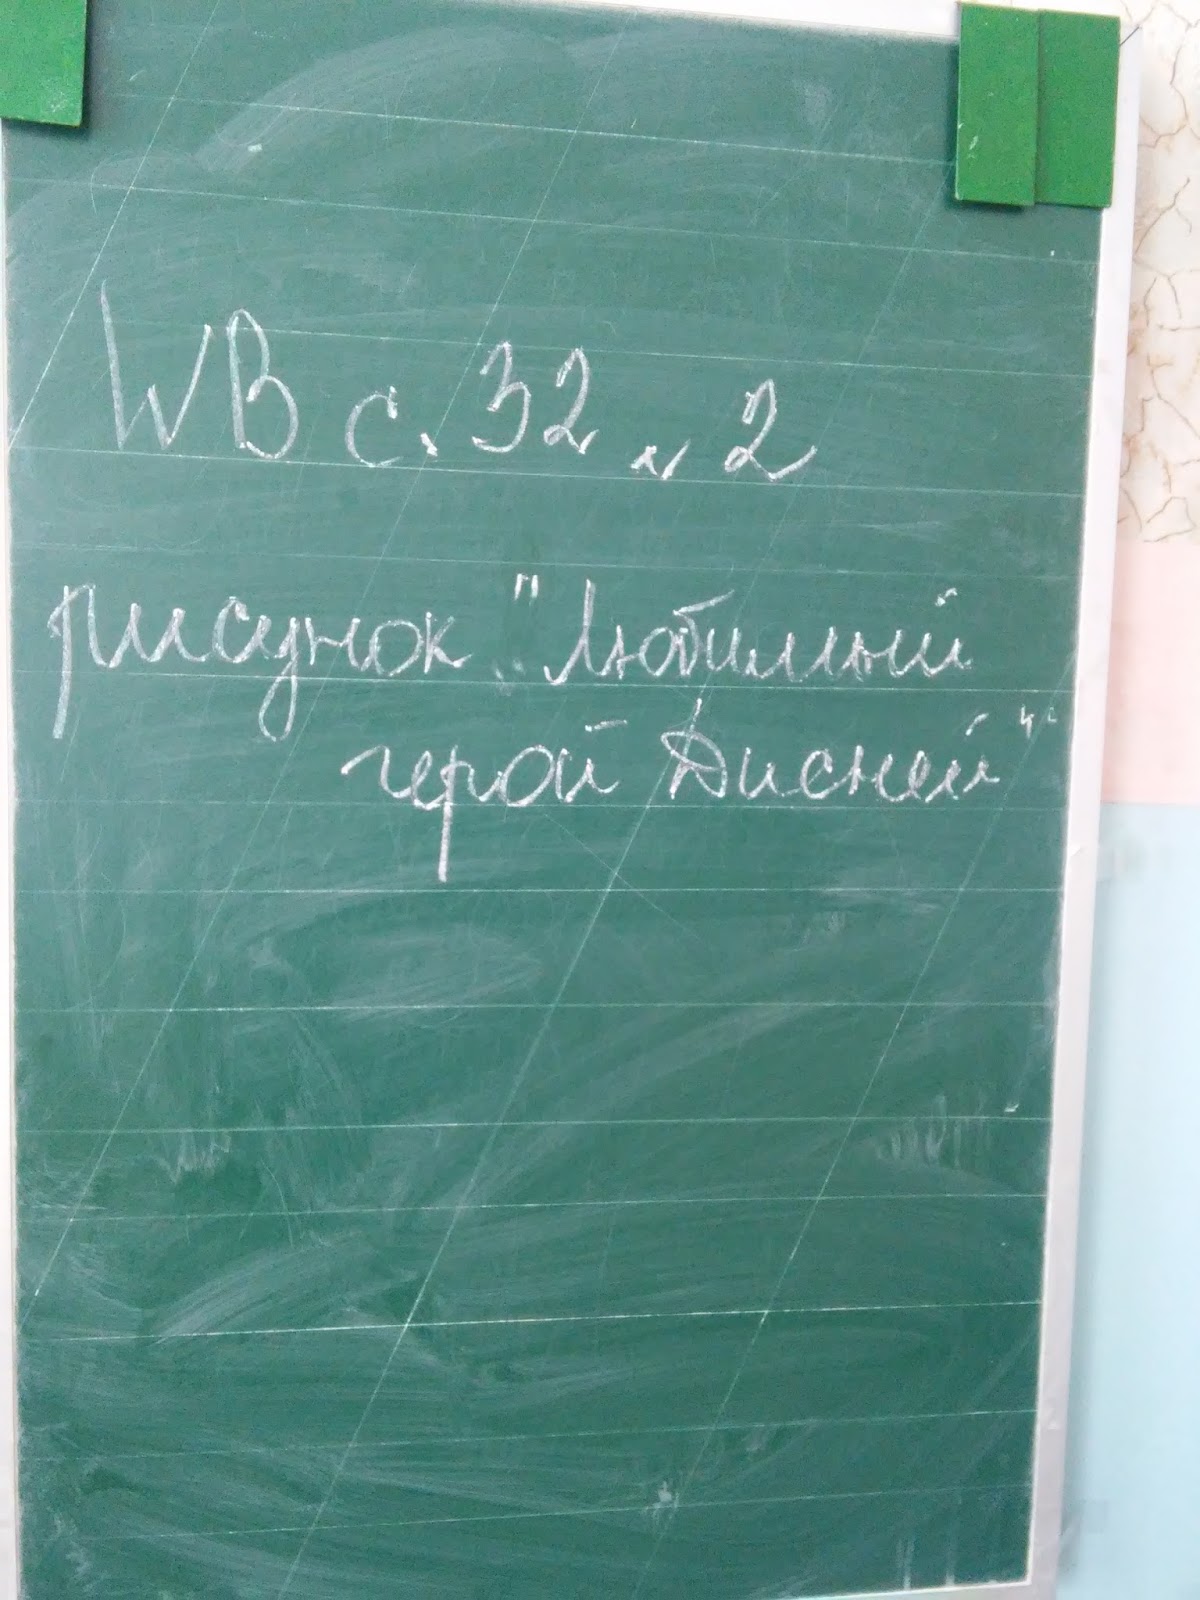 WB с. 32 N 2
рисунок "Любимый
герой Дисней"